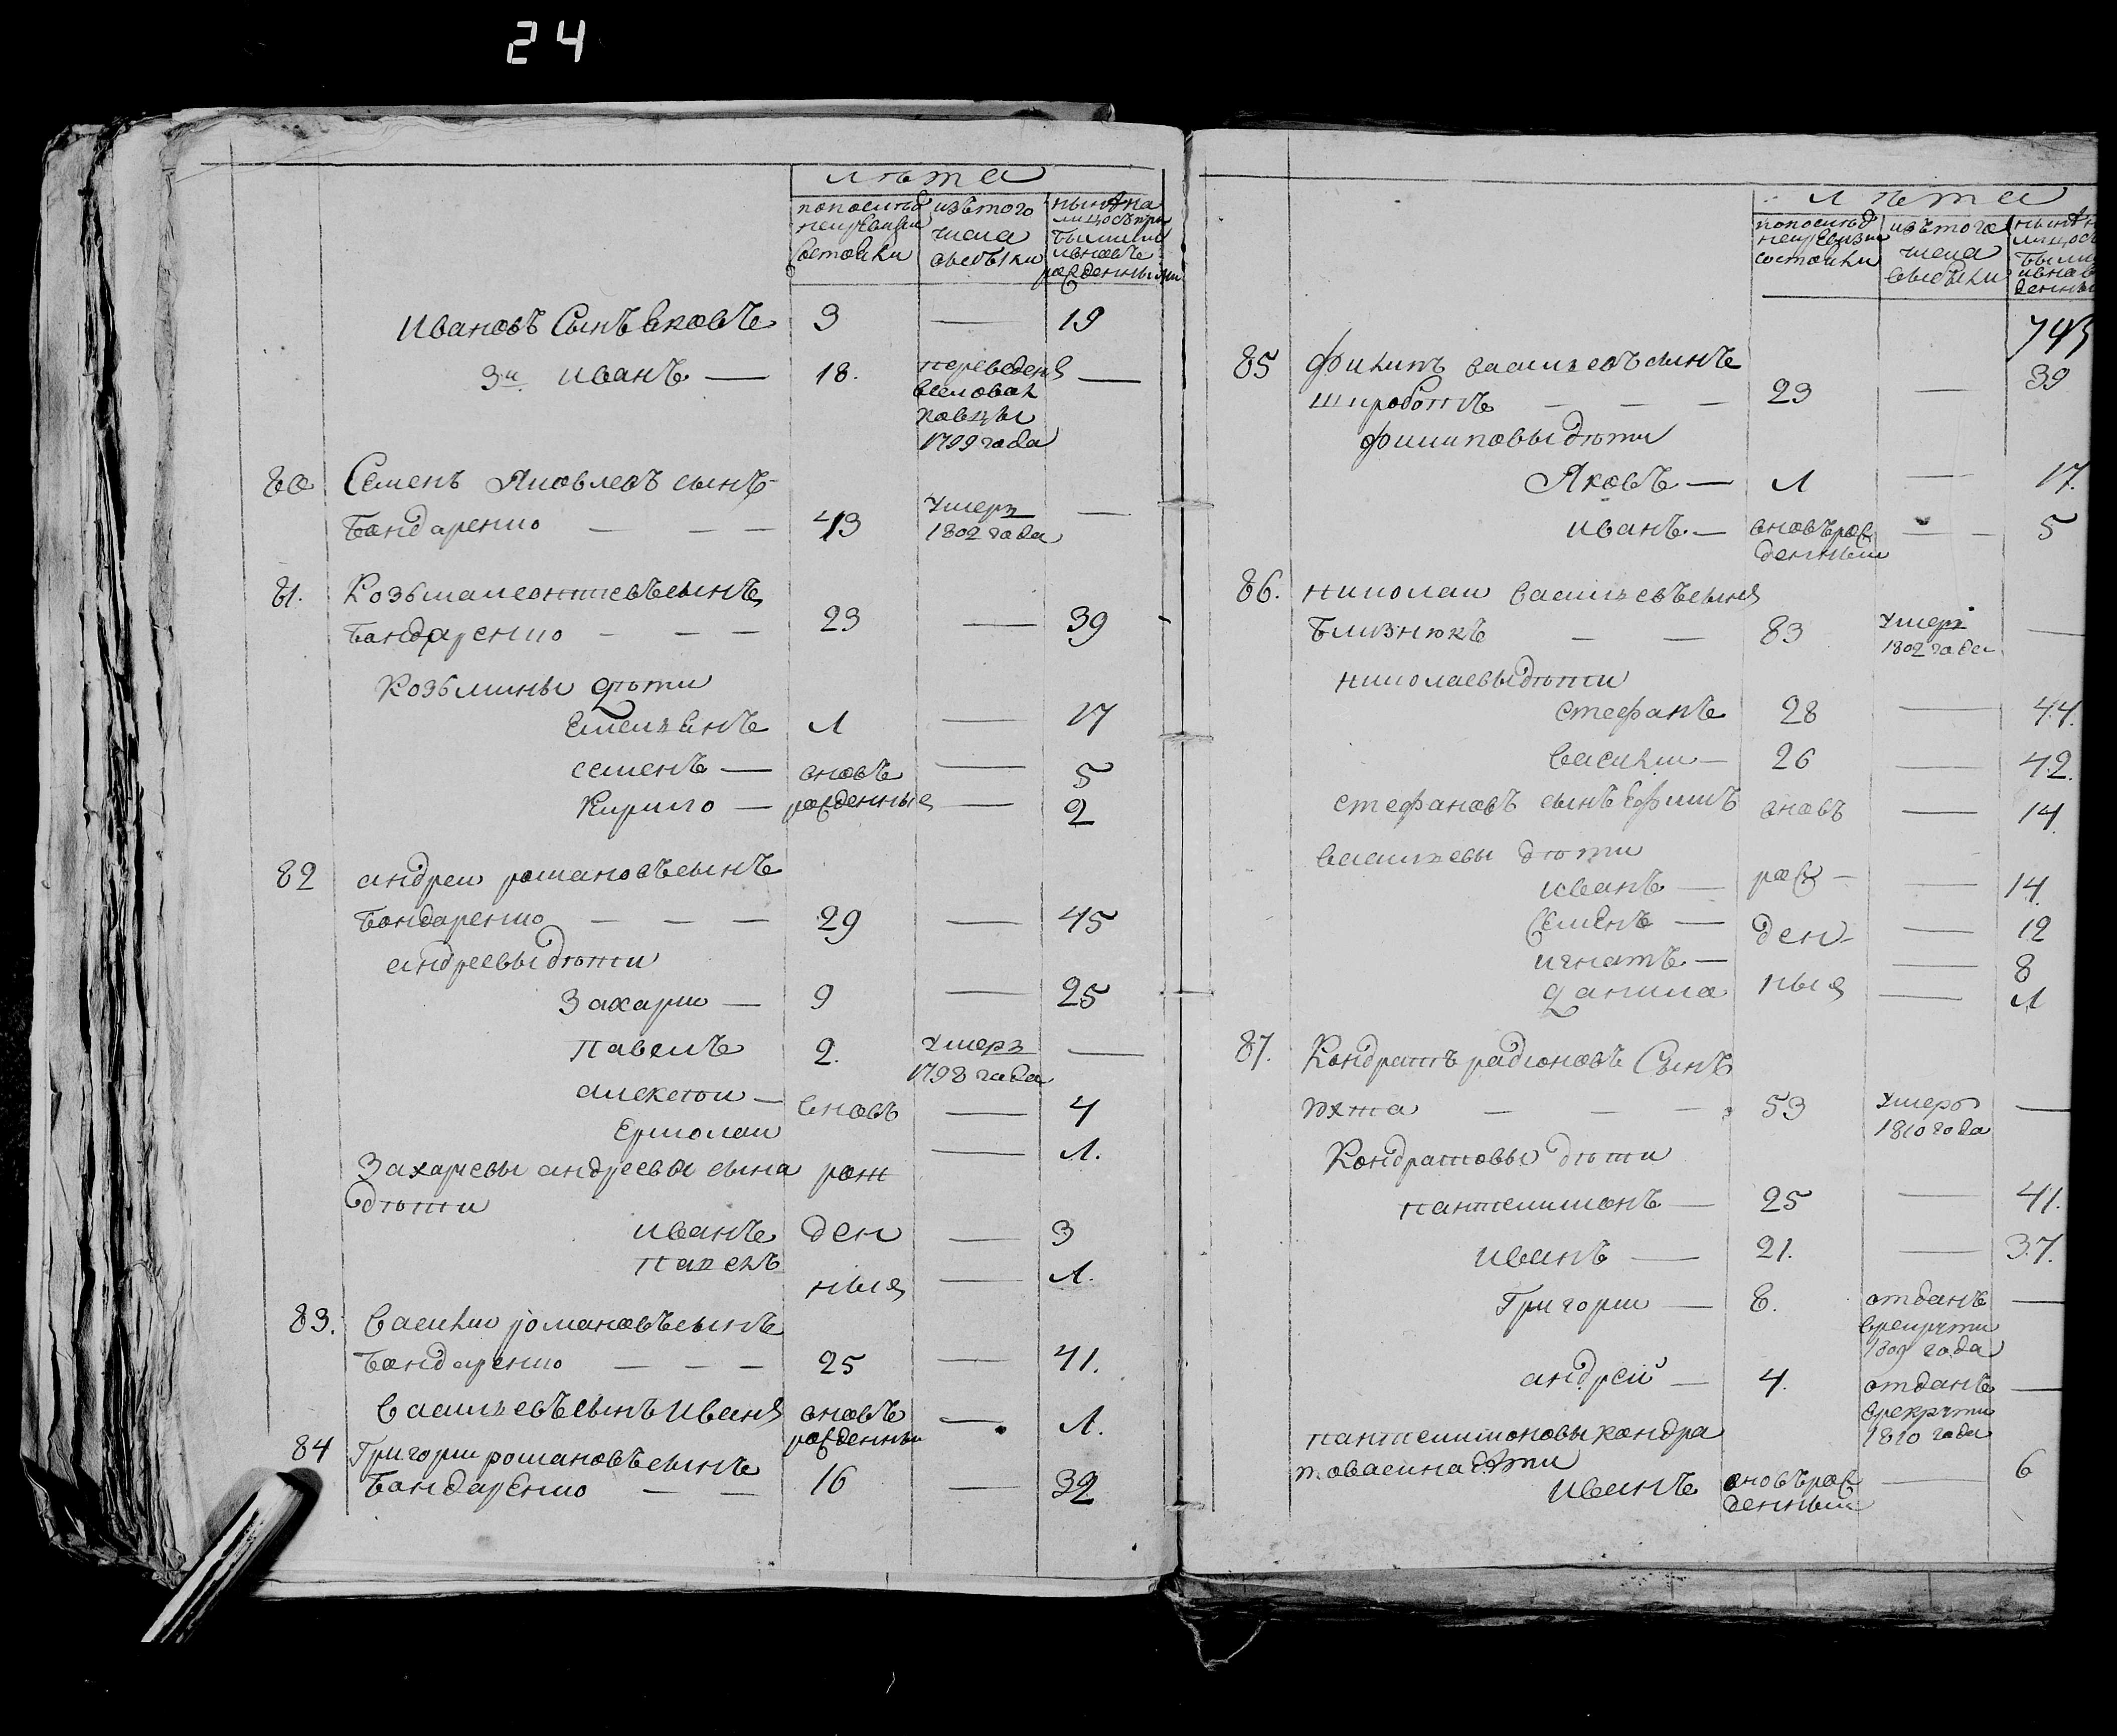 24
лѣта
попослѣд изътого нынѣна
неиревизіи числа лицосъпри
состояли выбыли былыми
ивновь
рожденными
Ивановъ Сынъ Яковъ 3 — 19
3й Иванъ — 18. переведенъ —
вселовак
повцы
1799 года
80 Семенъ Яковлевъ сынъ
Бондаренко — — — 43 Умеръ —
1802 года
81. Козьма леонтиевъ сынъ
Бондаренко — — — 23 — 39
Козьмины дѣти
Емельянъ 1 — 17
семенъ — вновь — 5
Кирило — рожденныя — 2
82 андреи романовъ сынъ
Бондаренко — — — 29 — 45
андреевы дѣти
Захари — 9 — 25
Павелъ 2. Умеръ —
1798 года
алексеи — вновь — 4
Ермолаи — 1.
Захарьевы андреева сына рож
дѣти
Иванъ ден — 3
Павелъ ныя — 1.
83. Василии романовъ сынъ
Бондаренко — — — 25 — 41.
Васильевъ сынъ Иванъ вновь — 1.
рожденныи
84 Григории романовъ сынъ
Бондаренко — — 16 — 32
лѣта
попослѣд изътого нынѣн
неиревизіи числа лицос
состояли выбыли были
ивнов
денны
743
85 Филипъ васильевъ сынъ 39
широботъ — — — 23 —
филиповы дѣти
Яковъ — 1 — 17.
иванъ — вновърож — — 5
денныи
86. николаи васильевъ сынъ
Близнюкъ — — 83 Умеръ —
1802 года
николаевы дѣти
стефанъ 28 — 44.
василии — 26 — 42.
стефановъ сынъ Ефимъ вновь — 14
васильевы дѣти
иванъ — рож — — 14
Семенъ — ден — 12
игнатъ — — 8
данила ныя — 1
87. Кондратъ радионовъ Сынъ
южа — — — 53 Умеръ —
1810 года
Кондратовы дѣти
пантелимонъ — 25 — 41.
иванъ — 21. — 37.
Григории — 8. отданъ —
врекруты
1809 года
андрей — 4. отданъ —
врекруты
пантелимоновы кондра 1810 года
това сина дѣти 6
иванъ вновърож —
денныи